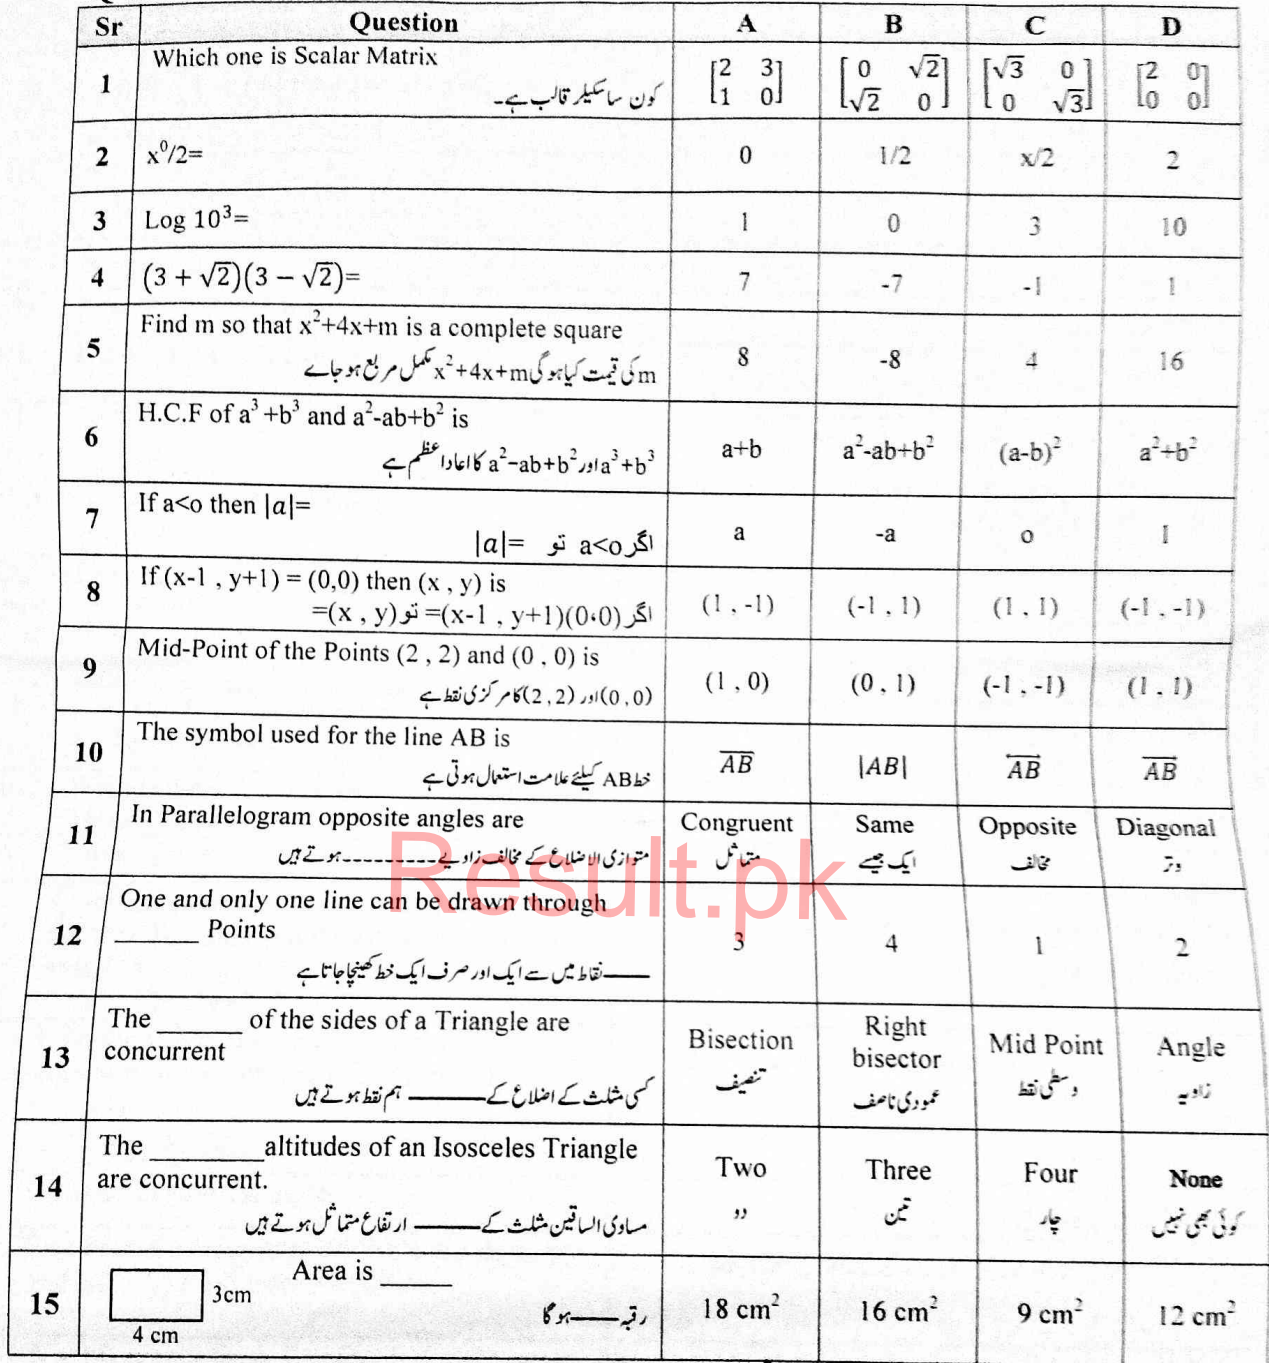 Sr Question A B C D
1 Which one is Scalar Matrix
کون سا سکیلر قالب ہے۔
[2 3; 1 0] [0 √2; √2 0] [√3 0; 0 √3] [2 0; 0 0]
2 x⁰/2= 0 1/2 x/2 2
3 Log 10³= 1 0 3 10
4 (3 + √2)(3 − √2)= 7 -7 -1 1
5 Find m so that x²+4x+m is a complete square
m کی قیمت کیا ہوگی x²+4x+m مکمل مربع ہو جاے
8 -8 4 16
6 H.C.F of a³ +b³ and a²-ab+b² is
a³+b³ اور a²-ab+b² کا عاداعظم ہے
a+b a²-ab+b² (a-b)² a²+b²
7 If a<o then |a|=
اگر a<o تو |a|=
a -a o 1
8 If (x-1 , y+1) = (0,0) then (x , y) is
اگر (0،0)=(x-1 , y+1) تو (x , y)=
(1 , -1) (-1 , 1) (1 , 1) (-1 , -1)
9 Mid-Point of the Points (2 , 2) and (0 , 0) is
(0 , 0) اور (2 , 2) کا مرکزی نقطہ ہے
(1 , 0) (0 , 1) (-1 , -1) (1 , 1)
10 The symbol used for the line AB is
خط AB کیلئے علامت استعمال ہوتی ہے
AB |AB| AB AB
11 In Parallelogram opposite angles are
متوازی الاضلاع کے مخالف زاویے ---------- ہوتے ہیں
Congruent Same Opposite Diagonal
متماثل ایک جیسے مخالف وتر
12 One and only one line can be drawn through
______ Points
____ نقاط میں سے ایک اور صرف ایک خط کھینچا جاتا ہے
3 4 1 2
13 The ______ of the sides of a Triangle are
concurrent
کسی مثلث کے اضلاع کے ______ ہم نقطہ ہوتے ہیں
Bisection Right bisector Mid Point Angle
تنصیف عمودی ناصف وسطی نقطہ زاویہ
14 The ________ altitudes of an Isosceles Triangle
are concurrent.
مساوی الساقین مثلث کے ______ ارتفاع متماثل ہوتے ہیں
Two Three Four None
دو تین چار کوئی بھی نہیں
15 Area is _____
3cm
4 cm
رقبہ ____ ہوگا
18 cm² 16 cm² 9 cm² 12 cm²
Result.pk